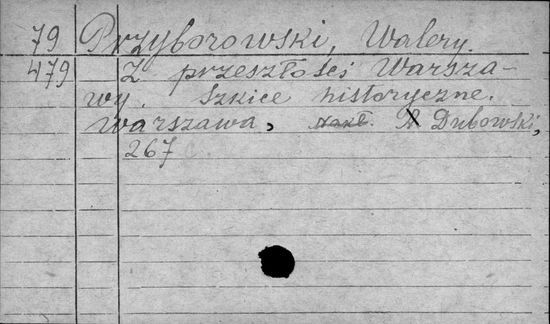 79 Przyborowski, Walery.
479 Z przeszłości Warsza-
wy. Szkice historyczne.
Warszawa, Nakł. A Dubowski,
267